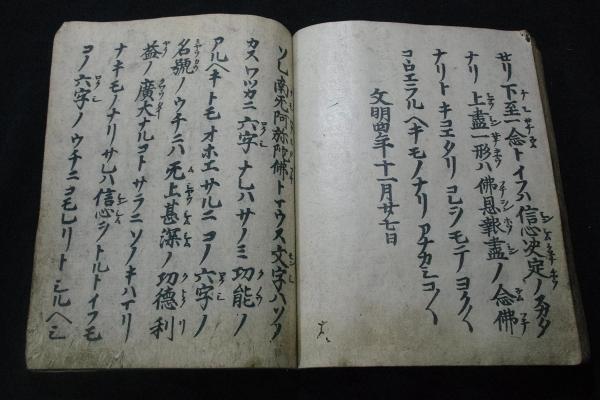 セリ下至一念トイフハ信心决定ノスカタ
ナリ上盡一形ハ佛恩報盡ノ念佛
ナリトキコエタリコレヲモテヨク〱
コヽロエラルヘキモノナリアナカシコ〱
文明四年十一月廿七日
ソレ南无阿弥陀佛トマウス文字ハソノ
カスワツカニ六字ナレハサノミ功能ノ
アルヘキトモオホエサルニコノ六字ノ
名號ノウチニハ无上甚深ノ功德利
益ノ廣大ナルコトサラニソノキハマリ
ナキモノナリサレハ信心ヲトルトイフモ
コノ六字ノウチニコモレリトシルヘシ